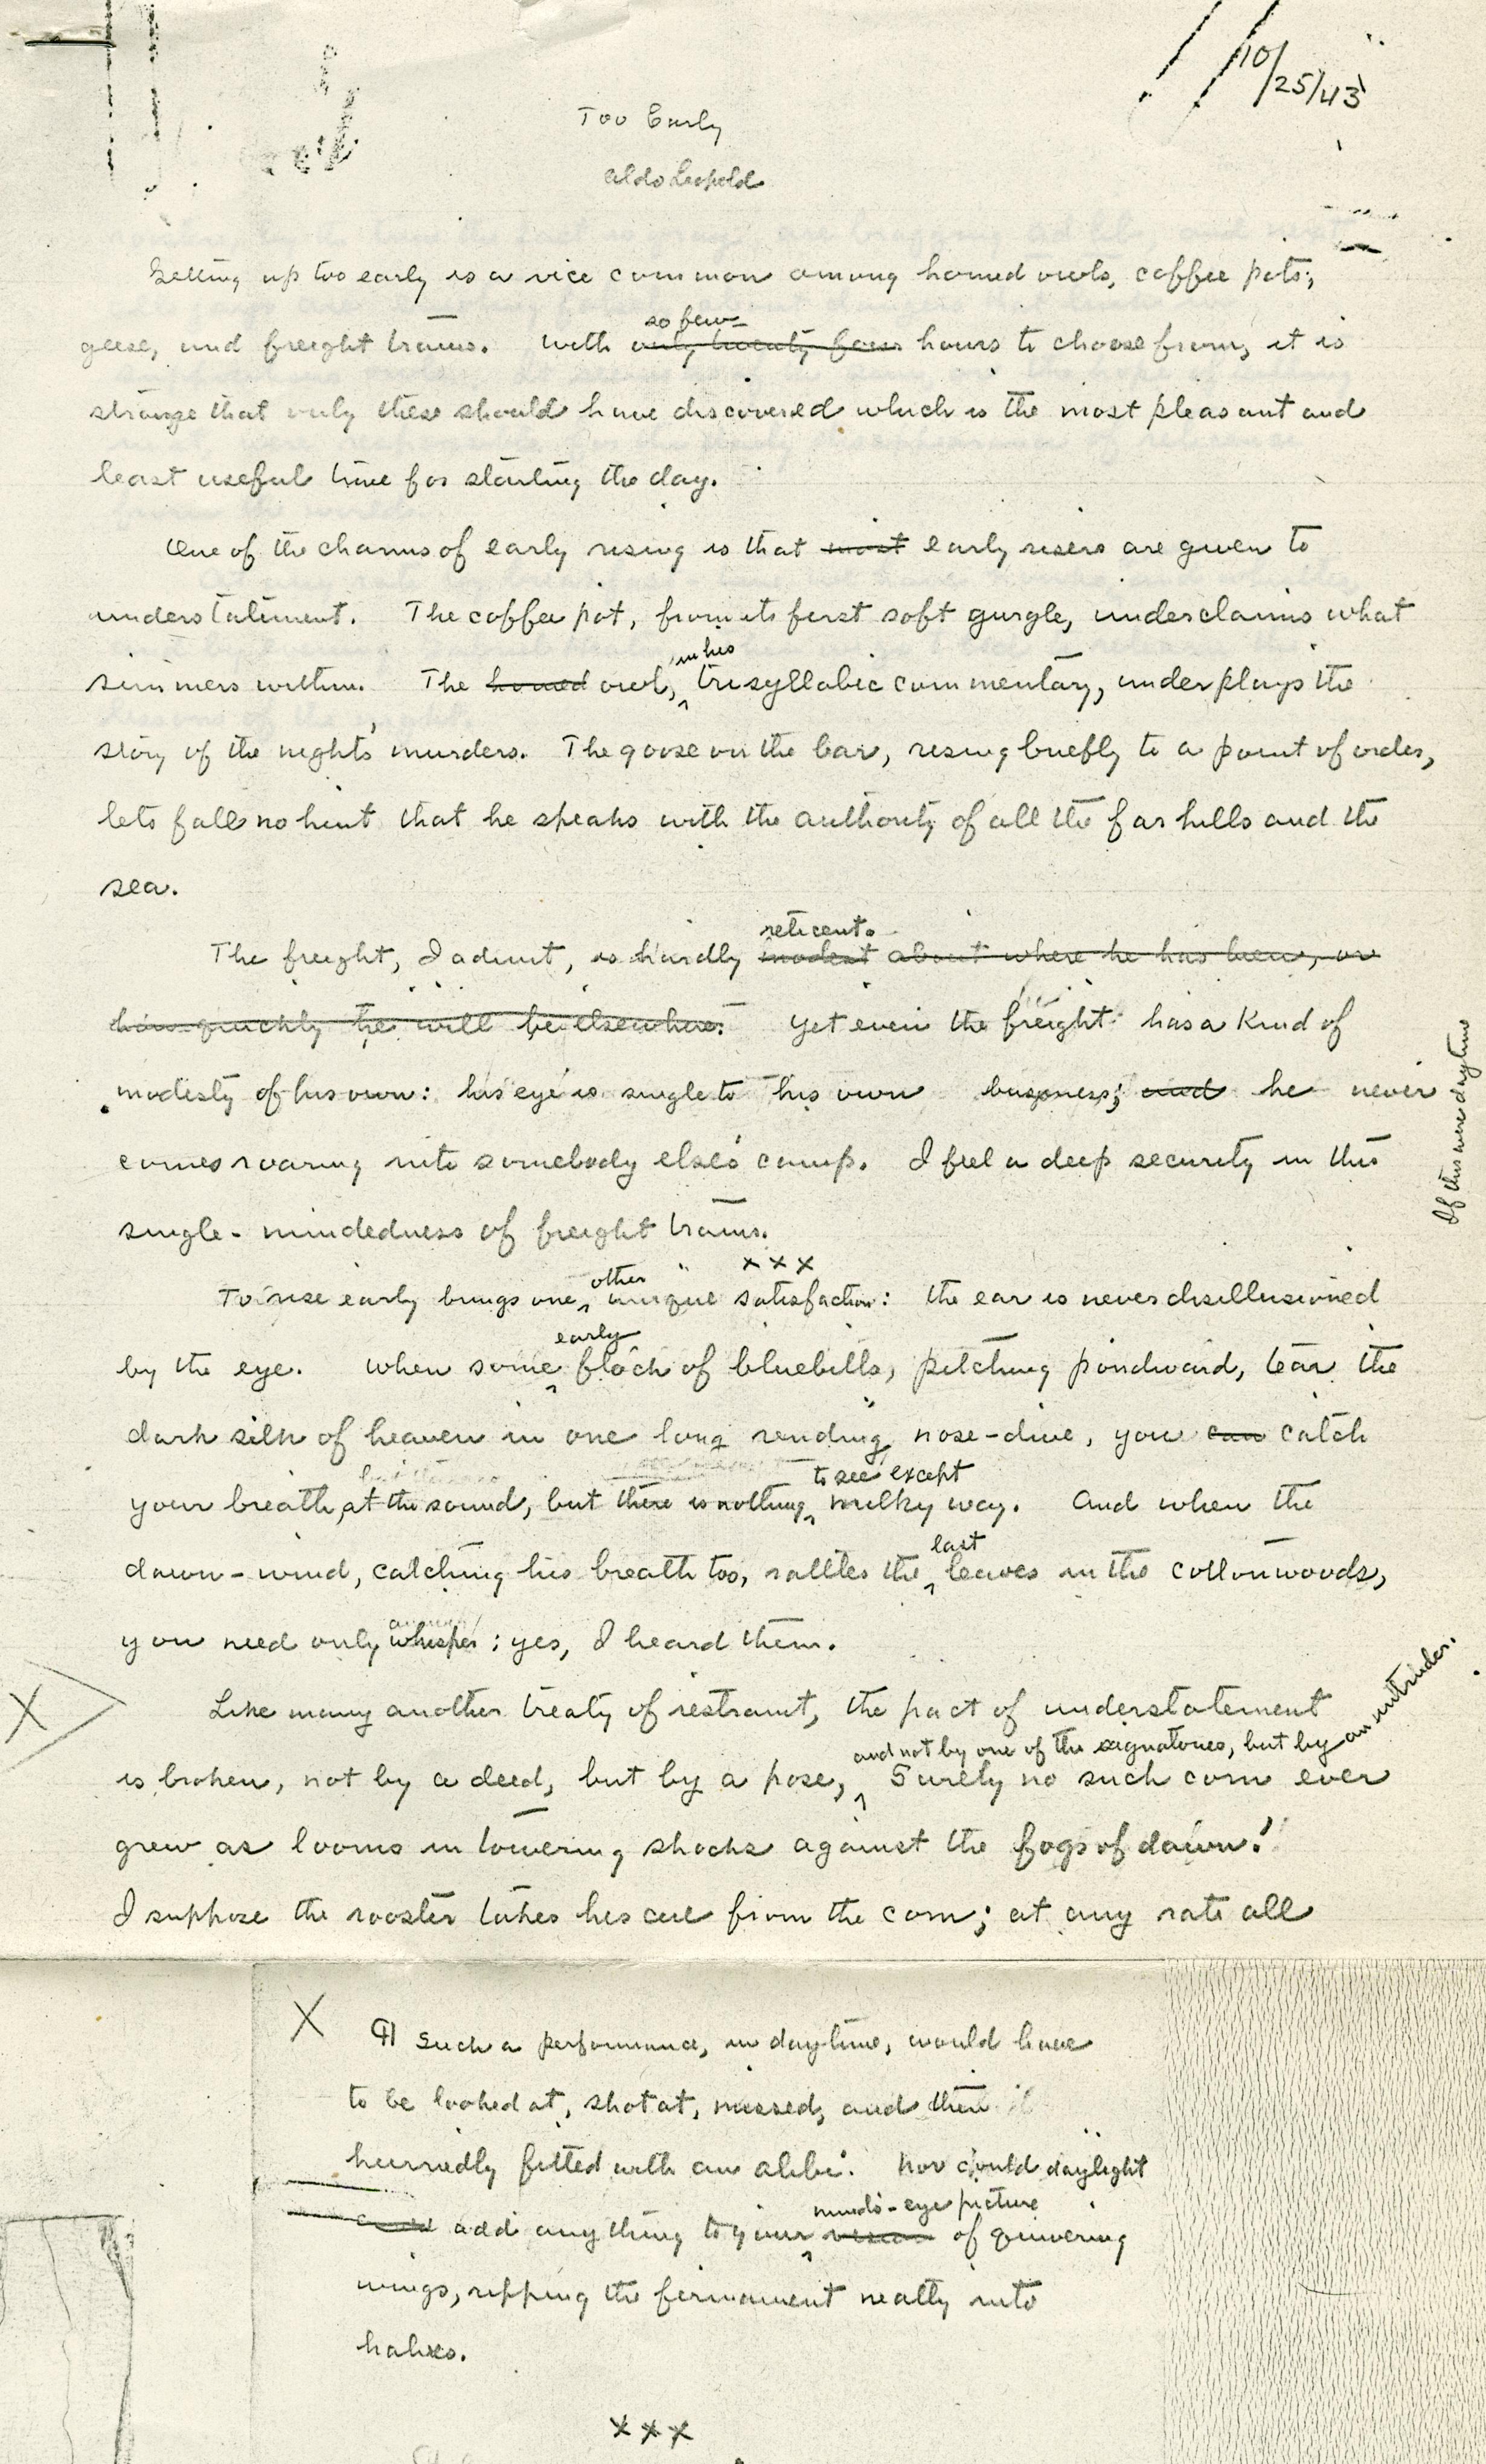 10/25/43
Too Early
Aldo Leopold
Getting up too early is a vice common among horned owls, coffee pots,
so few
geese, and freight trains. With only twenty four hours to choose from, it is
strange that only these should have discovered which is the most pleasant and
least useful time for starting the day.
One of the charms of early rising is that most early risers are given to
understatement. The coffee pot, from its first soft gurgle, underclaims what
in his
simmers within. The horned owl, trisyllabic commentary, underplays the
story of the night's murders. The goose on the bar, rising briefly to a point of order,
lets fall no hint that he speaks with the authority of all the far hills and the
sea.
reticent.
The freight, I admit, is hardly modest about where he has been, or
how quickly he will be elsewhere. Yet even the freight has a kind of
modesty of his own: his eye is single to his own business; and he never
comes roaring into somebody else's camp. I feel a deep security in this
single-mindedness of freight trains.
x x x
other
To rise early brings one unique satisfaction: the ear is never disillusioned
early
by the eye. When some flock of bluebills, pitching pondward, tear the
dark silk of heaven in one long rending nose-dive, you can catch
to see except
your breath at the sound, but there is nothing milky way. And when the
last
dawn-wind, catching his breath too, rattles the leaves in the cottonwoods,
you need only whisper: yes, I heard them.
If this were daytime
X
Like many another treaty of restraint, the pact of understatement
and not by one of the signatories, but by an intruder.
is broken, not by a deed, but by a pose, Surely no such corn ever
grew as looms in towering shocks against the fogs of dawn!
I suppose the rooster takes his cue from the corn; at any rate all
X ¶ Such a performance, in daytime, would have
to be looked at, shot at, missed, and then
hurriedly fitted with an alibi. Nor could daylight
mind's-eye picture
could add anything to your vision of quivering
wings, ripping the firmament neatly into
halves.
x x x